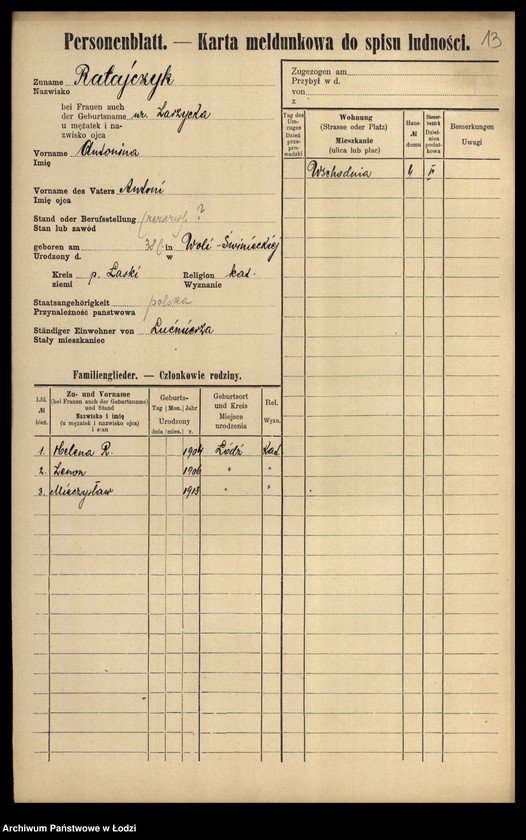 Personenblatt. — Karta meldunkowa do spisu ludności. 13
Zuname Ratajczyk
Nazwisko
bei Frauen auch
der Geburtsname ur. Zarzycka
u mężatek i na-
zwisko ojca
Vorname Antonina
Imię
Vorname des Vaters Antoni
Imię ojca
Stand oder Berufsstellung ?
Stan lub zawód
geboren am in Woli-Świnieckiej
Urodzony d. w
Kreis p. Łaski Religion kat.
ziemi Wyznanie
Staatsangehörigkeit polska
Przynależność państwowa
Ständiger Einwohner von Lućmierza
Stały mieszkaniec
Zugezogen am
Przybył w d.
von
z
Tag des Um-zuges Dzień prze-prowadzki
Wohnung
(Strasse oder Platz)
Mieszkanie
(ulica lub plac)
Haus-
№
domu
Steuer-bezirk Dziel-nica podat-kowa
Bemerkungen
Uwagi
Wschodnia 4 IV
Familienglieder. — Członkowie rodziny.
Lfd.
№
bież.
Zu- und Vorname
(bei Frauen auch der Geburtsname)
und Stand
Nazwisko i imię
(u mężatek i nazwisko ojca)
i stan
Geburts-
Tag Mon. Jahr
Urodzony
dnia mies. r.
Geburtsort
und Kreis
Miejsce
urodzenia
Rel.
Wyzn.
1. Helena R. 1904 Łódź kat.
2. Zenon 1906 " "
3. Mieczysław 1913 " "
Archiwum Państwowe w Łodzi